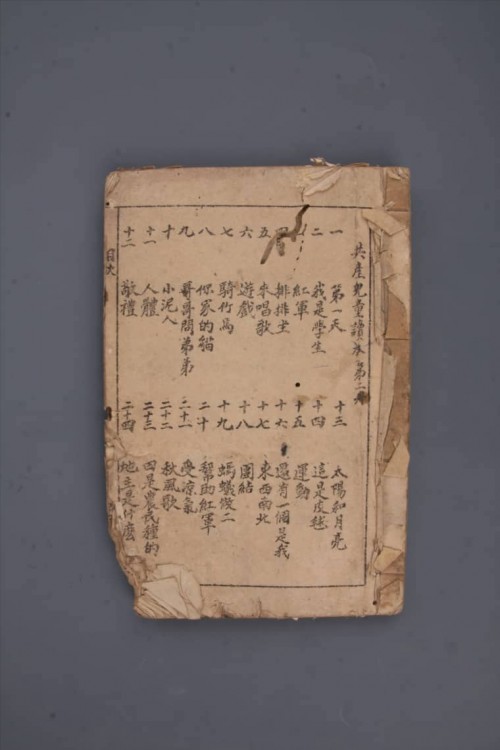 共產兒童讀本第二
一 第一天
二 我是學生
紅軍
排排坐
五 來唱歌
六 遊戲
七 騎竹馬
八 你家的貓
九 哥哥問弟弟
十 小泥人
十一 人體
十二 敬禮
十三 太陽和月亮
十四 這是皮毬
十五 運動
十六 還有一個是我
十七 東西南北
十八 團結
十九 螞蟻做工
二十 幫助紅軍
二十一 受涼氣
二十二 秋風歌
二十三 田是農民種的
二十四 地主是什麼
目次